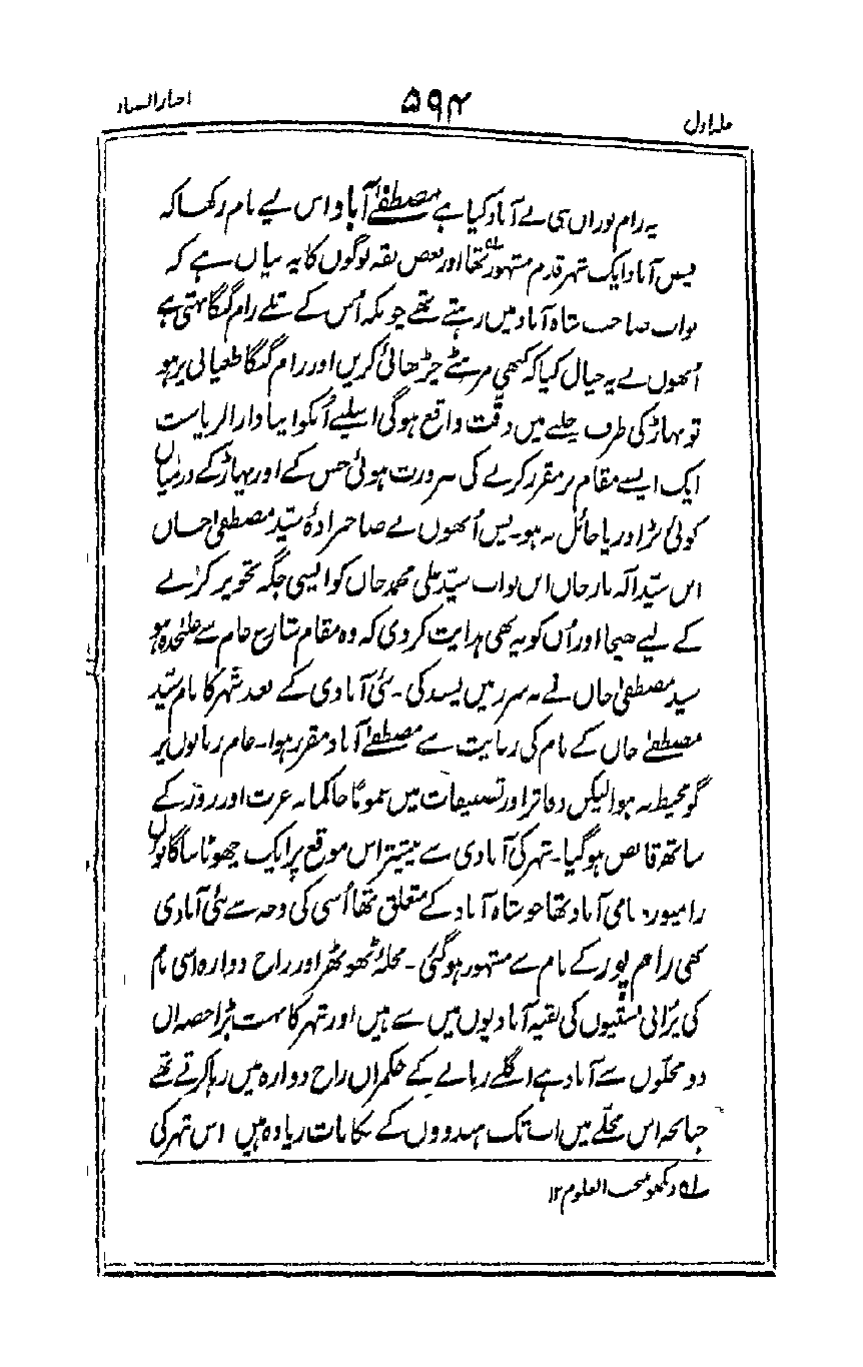 جلد اول
۵۹۴
اخبار الصنادید
یہ رام پور ان ہی نے آباد کیا ہے مصطفےٰ آباد اس لیے نام رکھا کہ
آباد ایک شہر قدیم مشہور تھا اور بعض ثقہ لوگوں کا یہ بیان ہے کہ
نواب صاحب شاہ آباد میں رہتے تھے چونکہ اُس کے تلے رام گنگا بہتی ہے
اُنھوں نے یہ خیال کیا کہ کبھی مرہٹے چڑھائی کریں اور رام گنگا طغیانی پر ہو
تو پہاڑ کی طرف چلنے میں دقت واقع ہوگی اسلیے اُنکو اپنا دار الریاست
ایک ایسے مقام پر مقرر کرنے کی ضرورت ہوئی جس کے اور پہاڑ کے درمیان
کوئی بڑا دریا حائل نہ ہو۔ پس اُنھوں نے صاحبزادۂ سید مصطفیٰ خاں
ابن سید الہ یار خاں ابن نواب سید علی محمد خاں کو ایسی جگہ تجویز کرنے
کے لیے بھیجا اور اُن کو یہ بھی ہدایت کر دی کہ وہ مقام شارع عام سے علٰحدہ ہو
سید مصطفیٰ خاں نے یہ سرزمین پسند کی۔ نئی آبادی کے بعد شہر کا نام سید
مصطفےٰ خاں کے نام کی رعایت سے مصطفےٰ آباد مقرر ہوا۔ عام زبانوں پر
گو محیط نہ ہوا لیکن دفاتر اور تصنیفات میں عموماً حاکمانہ عزت اور زور کے
ساتھ قابض ہو گیا۔ شہر کی آبادی سے پیشتر اس موقع پر ایک چھوٹا سا گانوں
رامپور نامی آباد تھا جو شاہ آباد کے متعلق تھا اُسی کی وجہ سے نئی آبادی
بھی رام پور کے نام سے مشہور ہو گئی۔ محلہ ٹھوٹھر اور راج دوارہ اسی نام
کی پُرانی بستیوں کی بقیہ آبادیوں میں سے ہیں اور شہر کا بہت بڑا حصہ ان
دو محلّوں سے آباد ہے اگلے زمانے کے حکمراں راج دوارہ میں رہا کرتے تھے
چنانچہ اس محلّے میں اب تک ہندووں کے مکانات زیادہ ہیں اس شہر کی
لہ دیکھو منتخب العلوم ۱۲